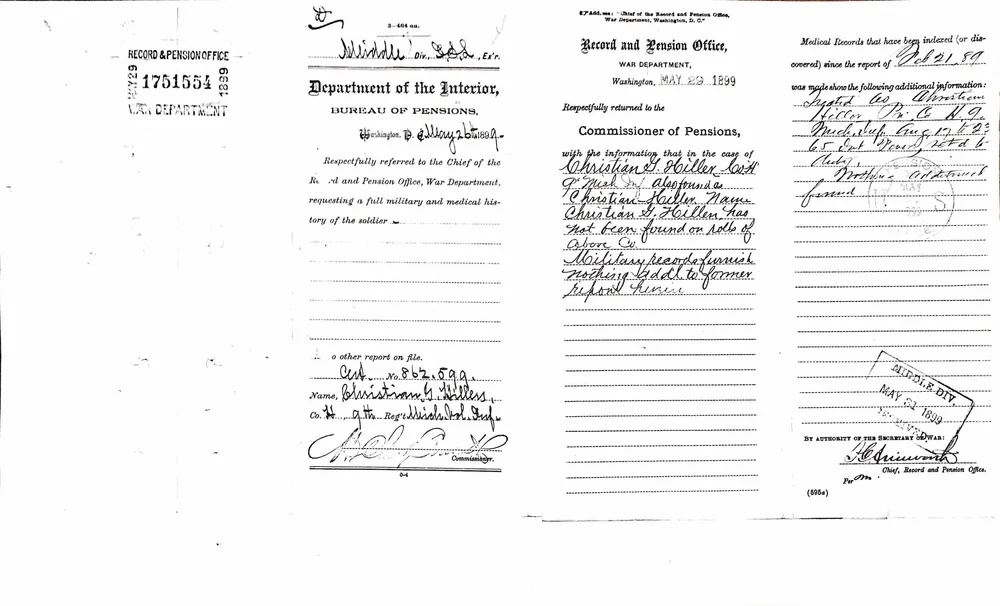 RECORD & PENSION OFFICE
MAY 29 1751554 1899
WAR DEPARTMENT
3—404 aa.
Middle Div., Ex'r.
Department of the Interior,
BUREAU OF PENSIONS,
Washington, D. C., May 26th, 1899.
Respectfully referred to the Chief of the
Re rd and Pension Office, War Department,
requesting a full military and medical his-
tory of the soldier
o other report on file.
Cert. No. 862,599,
Name, Christian G. Hillers,
Co. H, 9th Reg't Mich. Vol. Inf.
Commissioner.
0-4
Address: "Chief of the Record and Pension Office,
War Department, Washington, D. C."
Record and Pension Office,
WAR DEPARTMENT,
Washington, MAY 29 1899
Respectfully returned to the
Commissioner of Pensions,
with the information that in the case of
Christian G. Hiller Co H
9 Mich Inf also found as
Christian Hiller Name
Christian G. Hillen has
not been found on rolls of
above Co.
Military records furnish
nothing addl. to former
report herein
Medical Records that have been indexed (or dis-
covered) since the report of Feb 21, 89
was made show the following additional information:
Treated as Christian
Hiller Co H. 9
Mich. Inf. Aug 17 to 23
65 Int Fever, ret'd to
duty.
Nothing additional
found
MAY
MIDDLE DIV.
MAY 31 1899
RECEIVED
BY AUTHORITY OF THE SECRETARY OF WAR:
F C Ainsworth
Chief, Record and Pension Office.
Per M.
(595a)